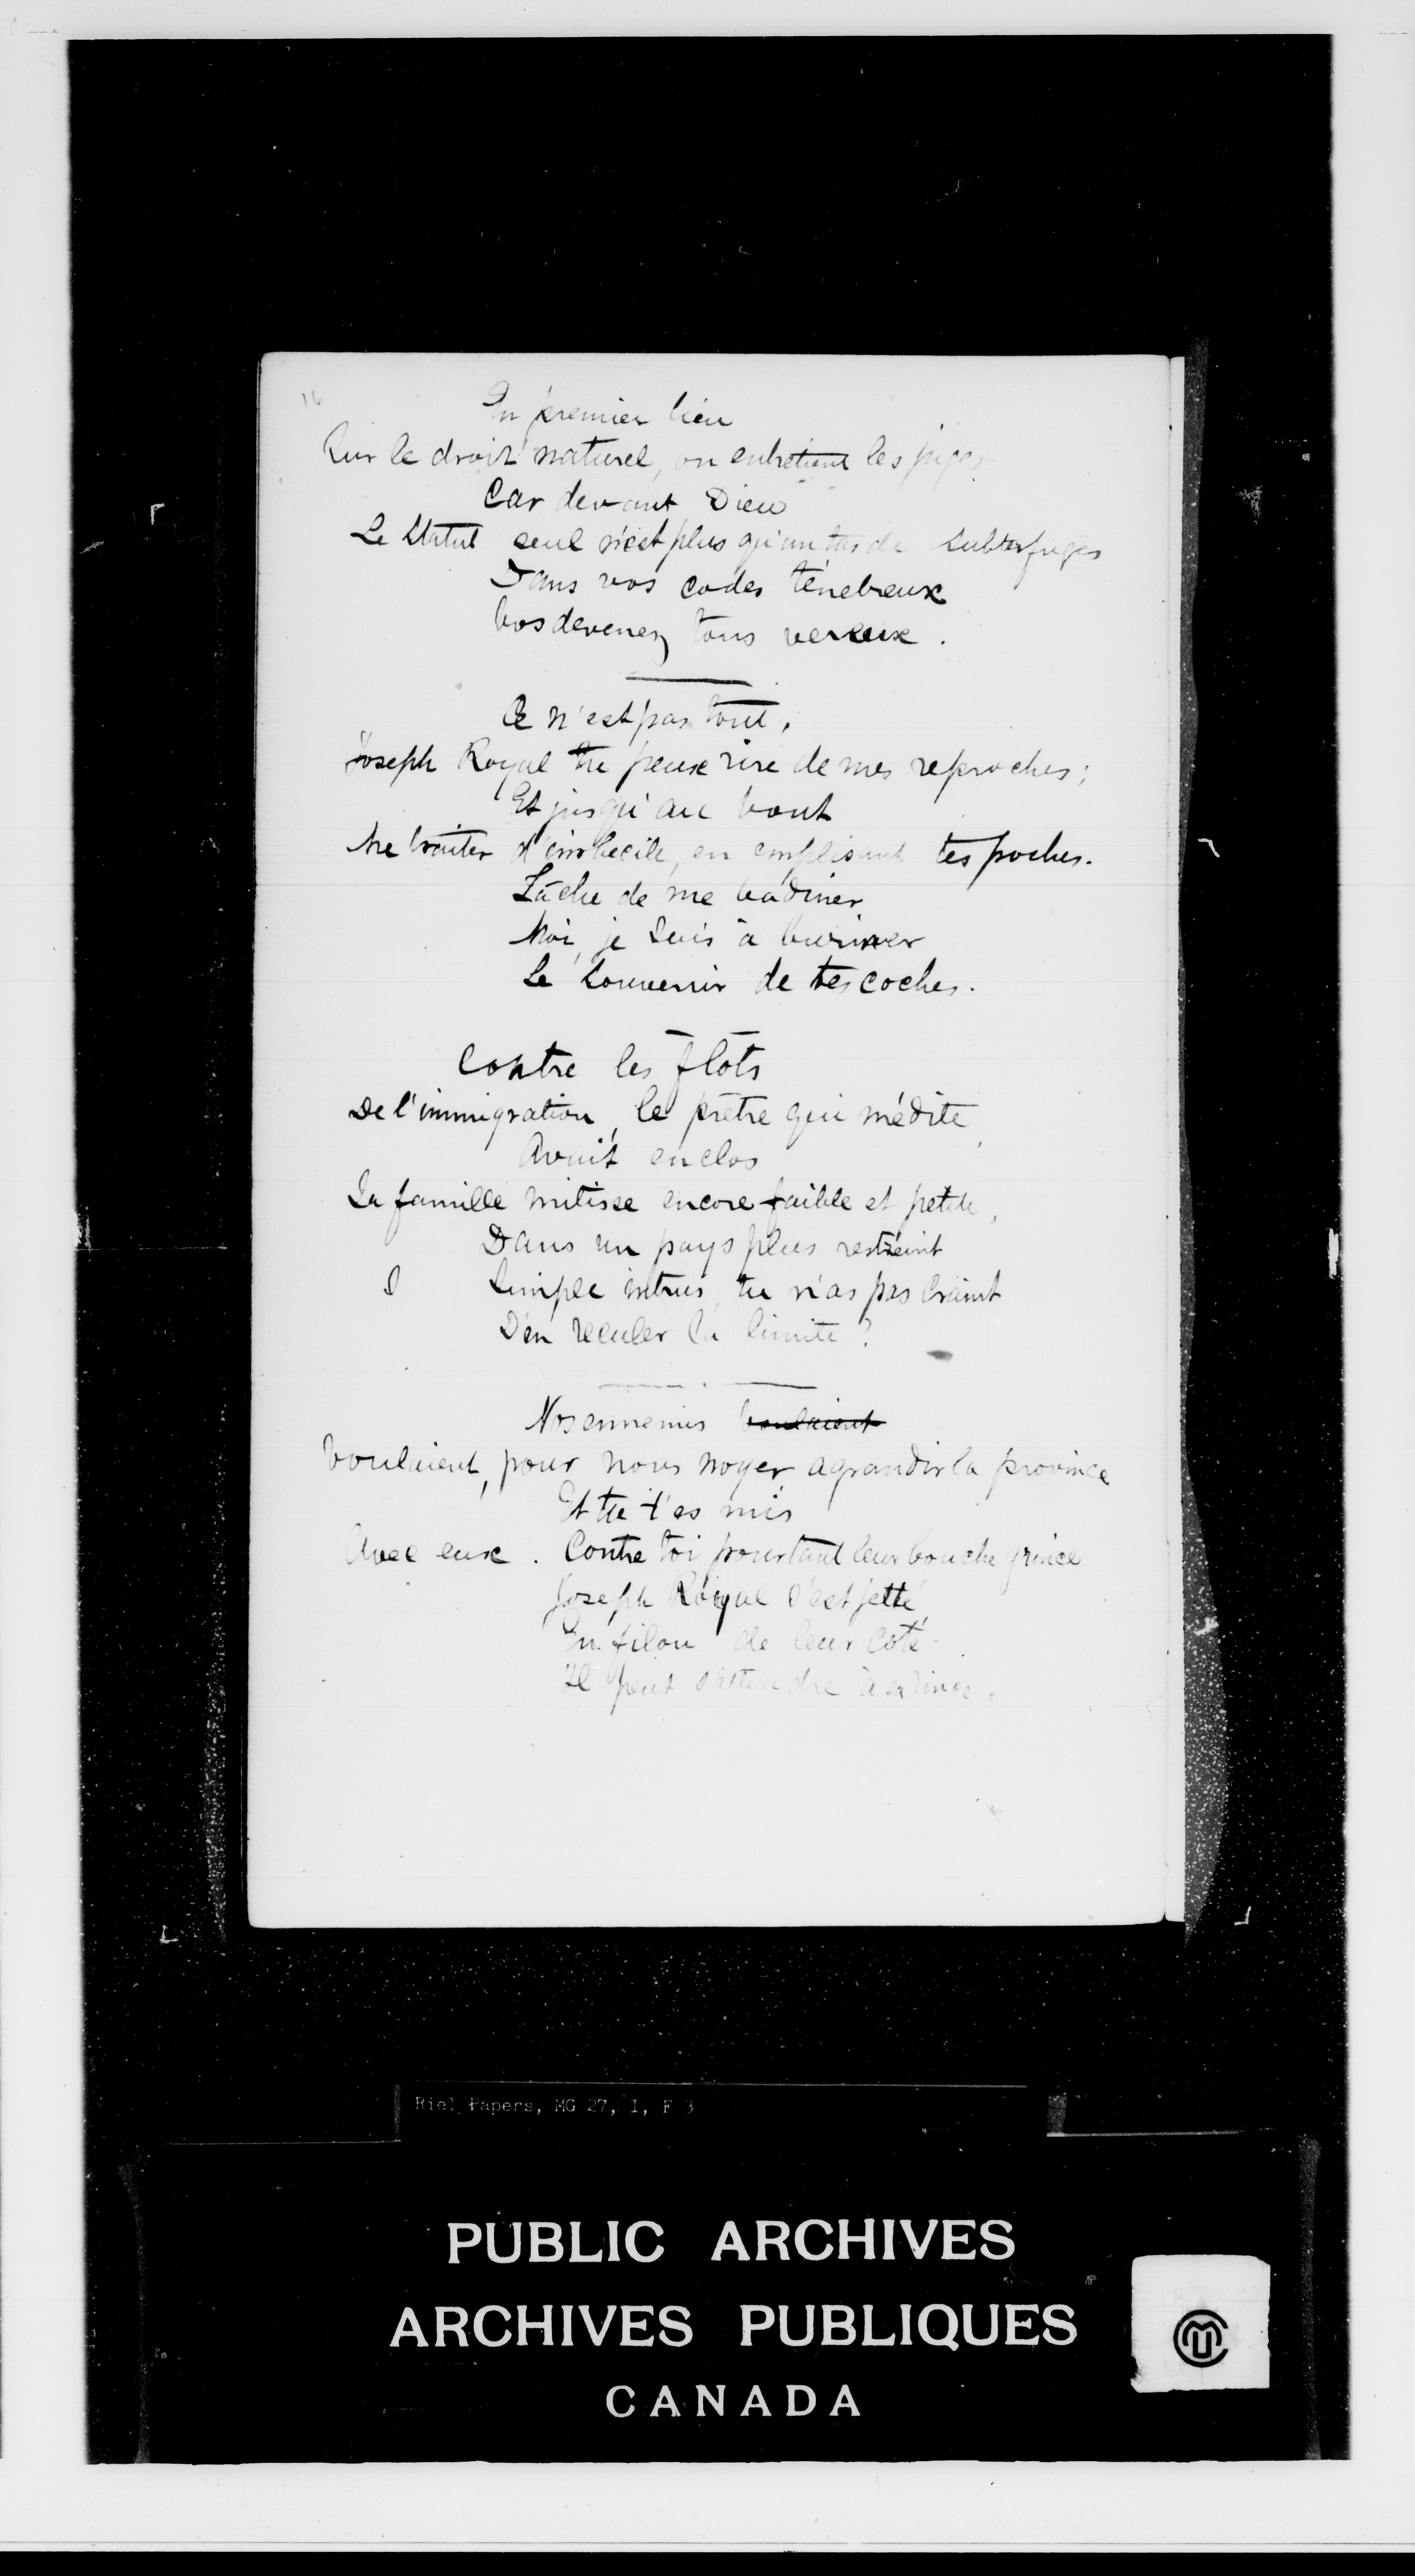 16
En premier lieu
Sur le droit naturel, on entretient les juges
Car devant Dieu
Le Statut seul n'est plus qu'un tas de subterfuges
Dans vos codes ténebreux
Vos devenez tous vereux.
Ce n'est pas tout,
Joseph Royal tu peux rire de mes reproches;
Et jusqu'au bout
Me traiter d'imbecile, en emplisant tes poches.
Tâche de me badiner,
Moi, je suis à buriner
Le Souvenir de tes coches.
Contre les flots
De l'immigration, le prêtre qui médite,
Avait enclos
La famille mitisse encore faible et petite,
Dans un pays plus restreint
S Simple intrus, tu n'as pas craint
D'en reculer la limite?
Nos ennemis voulaient
Voulaient, pour nous noyer agrandir la province
Et tu t'es mis
Avec eux. Contre toi pourtant leur bouche grince
Joseph Royal s'est jetté
En filou de leur coté.
Il peut s'attendre à sa rince.
Riel Papers, MG 27, I, F 3
PUBLIC ARCHIVES
ARCHIVES PUBLIQUES
CANADA